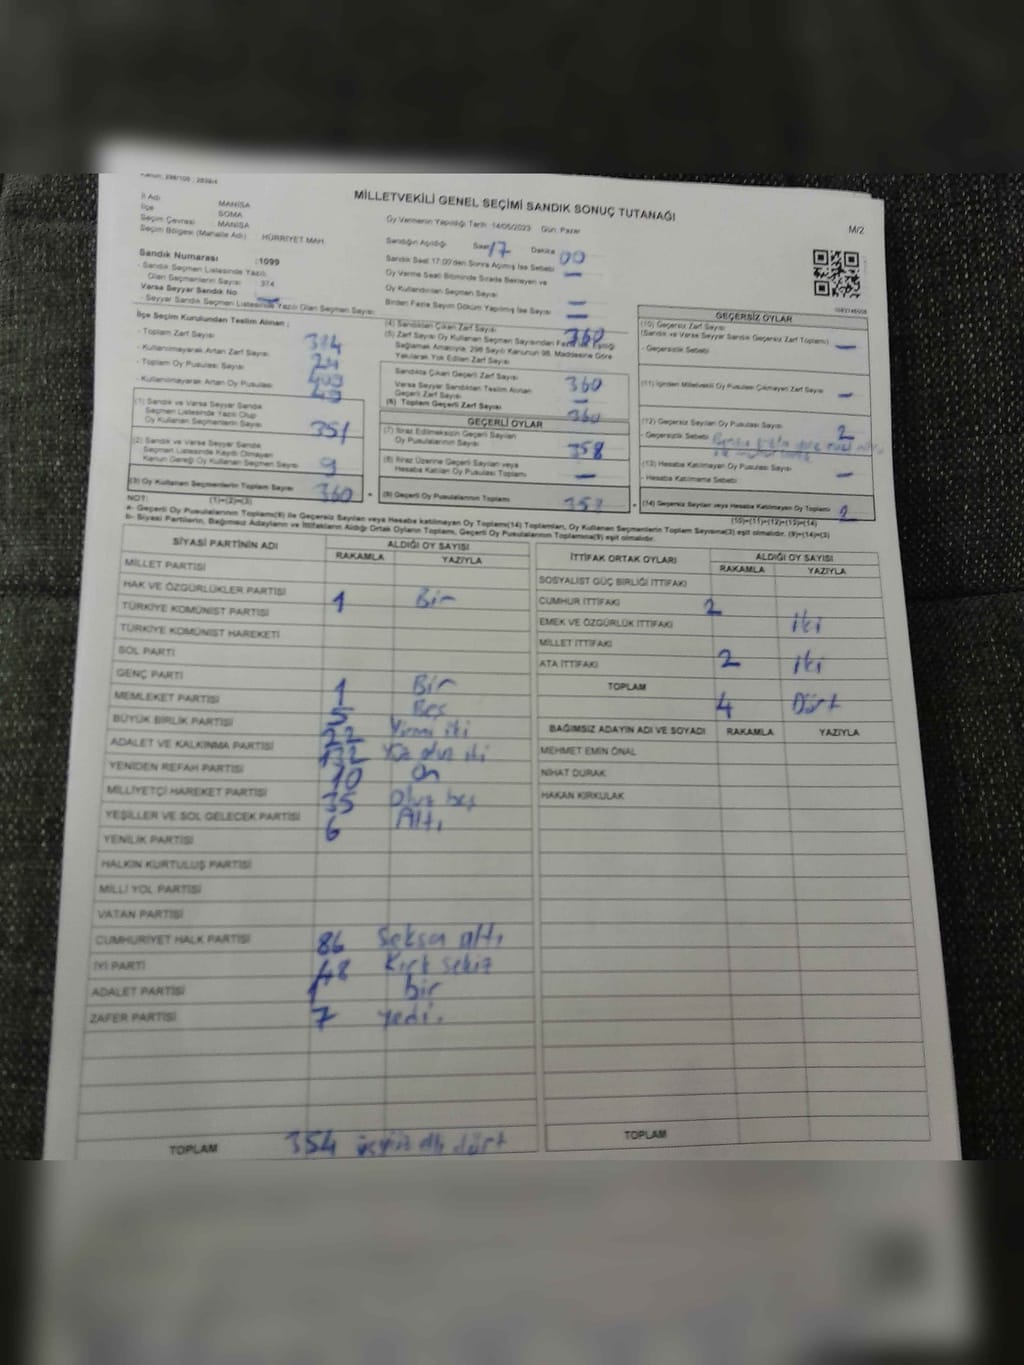 Kanun: 298/105 - 2839/4
MİLLETVEKİLİ GENEL SEÇİMİ SANDIK SONUÇ TUTANAĞI
M/2
İl Adı MANİSA
İlçe SOMA
Seçim Çevresi MANİSA
Seçim Bölgesi (Mahalle Adı) : HÜRRİYET MAH.
Sandık Numarası :1099
- Sandık Seçmen Listesinde Yazılı
Olan Seçmenlerin Sayısı 374
Varsa Seyyar Sandık No
- Seyyar Sandık Seçmen Listesinde Yazılı Olan Seçmen Sayısı:
Oy Vermenin Yapıldığı Tarih: 14/05/2023 Gün: Pazar
Sandığın Açıldığı Saat 17 Dakika 00
Sandık Saat 17:00'den Sonra Açılmış İse Sebebi
Oy Verme Saati Bitiminde Sırada Bekleyen ve
Oy Kullandırılan Seçmen Sayısı
Birden Fazla Sayım Döküm Yapılmış İse Sayısı
İlçe Seçim Kurulundan Teslim Alınan :
- Toplam Zarf Sayısı
- Kullanılmayarak Artan Zarf Sayısı
- Toplam Oy Pusulası Sayısı
- Kullanılmayarak Artan Oy Pusulası
(1) Sandık ve Varsa Seyyar Sandık
Seçmen Listesinde Yazılı Olup
Oy Kullanan Seçmenlerin Sayısı 351
(2) Sandık ve Varsa Seyyar Sandık
Seçmen Listesinde Kayıtlı Olmayan
Kanun Gereği Oy Kullanan Seçmen Sayısı 9
(3) Oy Kullanan Seçmenlerin Toplam Sayısı 360
(1)+(2)=(3)
(4) Sandıktan Çıkan Zarf Sayısı 360
(5) Zarf Sayısı Oy Kullanan Seçmen Sayısından Fazla İse, Eşitliği
Sağlamak Amacıyla, 298 Sayılı Kanunun 98. Maddesine Göre
Yakılarak Yok Edilen Zarf Sayısı
Sandıkta Çıkan Geçerli Zarf Sayısı 360
Varsa Seyyar Sandıktan Teslim Alınan
Geçerli Zarf Sayısı
(6) Toplam Geçerli Zarf Sayısı 360
GEÇERLİ OYLAR
(7) İtiraz Edilmeksizin Geçerli Sayılan
Oy Pusulalarının Sayısı 358
(8) İtiraz Üzerine Geçerli Sayılan veya
Hesaba Katılan Oy Pusulası Toplamı
(9) Geçerli Oy Pusulalarının Toplamı 358
GEÇERSİZ OYLAR
(10) Geçersiz Zarf Sayısı
(Sandık ve Varsa Seyyar Sandık Geçersiz Zarf Toplamı)
- Geçersizlik Sebebi
(11) İçinden Milletvekili Oy Pusulası Çıkmayan Zarf Sayısı
(12) Geçersiz Sayılan Oy Pusulası Sayısı 2
- Geçersizlik Sebebi
(13) Hesaba Katılmayan Oy Pusulası Sayısı
- Hesaba Katılmama Sebebi
(14) Geçersiz Sayılan veya Hesaba Katılmayan Oy Toplamı 2
(10)+(11)+(12)+(13)=(14)
NOT:
a- Geçerli Oy Pusulalarının Toplamı(9) ile Geçersiz Sayılan veya Hesaba katılmayan Oy Toplamı(14) Toplamları, Oy Kullanan Seçmenlerin Toplam Sayısına(3) eşit olmalıdır. (9)+(14)=(3)
b- Siyasi Partilerin, Bağımsız Adayların ve İttifakların Aldığı Ortak Oyların Toplamı, Geçerli Oy Pusulalarının Toplamına(9) eşit olmalıdır.
SİYASİ PARTİNİN ADI ALDIĞI OY SAYISI
RAKAMLA YAZIYLA
MİLLET PARTİSİ
HAK VE ÖZGÜRLÜKLER PARTİSİ
TÜRKİYE KOMÜNİST PARTİSİ 1 Bir
TÜRKİYE KOMÜNİST HAREKETİ
SOL PARTİ
GENÇ PARTİ
MEMLEKET PARTİSİ 1 Bir
BÜYÜK BİRLİK PARTİSİ 5 Beş
ADALET VE KALKINMA PARTİSİ 132 Yüz otuz iki
YENİDEN REFAH PARTİSİ 10 On
MİLLİYETÇİ HAREKET PARTİSİ 35 Otuz beş
YEŞİLLER VE SOL GELECEK PARTİSİ 6 Altı
YENİLİK PARTİSİ
HALKIN KURTULUŞ PARTİSİ
MİLLİ YOL PARTİSİ
VATAN PARTİSİ
CUMHURİYET HALK PARTİSİ 86 Seksen altı
İYİ PARTİ 48 Kırk sekiz
ADALET PARTİSİ 1 bir
ZAFER PARTİSİ 7 yedi.
TOPLAM 354 üçyüz elli dört
İTTİFAK ORTAK OYLARI ALDIĞI OY SAYISI
RAKAMLA YAZIYLA
SOSYALİST GÜÇ BİRLİĞİ İTTİFAKI
CUMHUR İTTİFAKI 2 iki
EMEK VE ÖZGÜRLÜK İTTİFAKI
MİLLET İTTİFAKI 2 iki
ATA İTTİFAKI
TOPLAM 4 Dört
BAĞIMSIZ ADAYIN ADI VE SOYADI RAKAMLA YAZIYLA
MEHMET EMİN ÖNAL
NİHAT DURAK
HAKAN KIRKULAK
TOPLAM